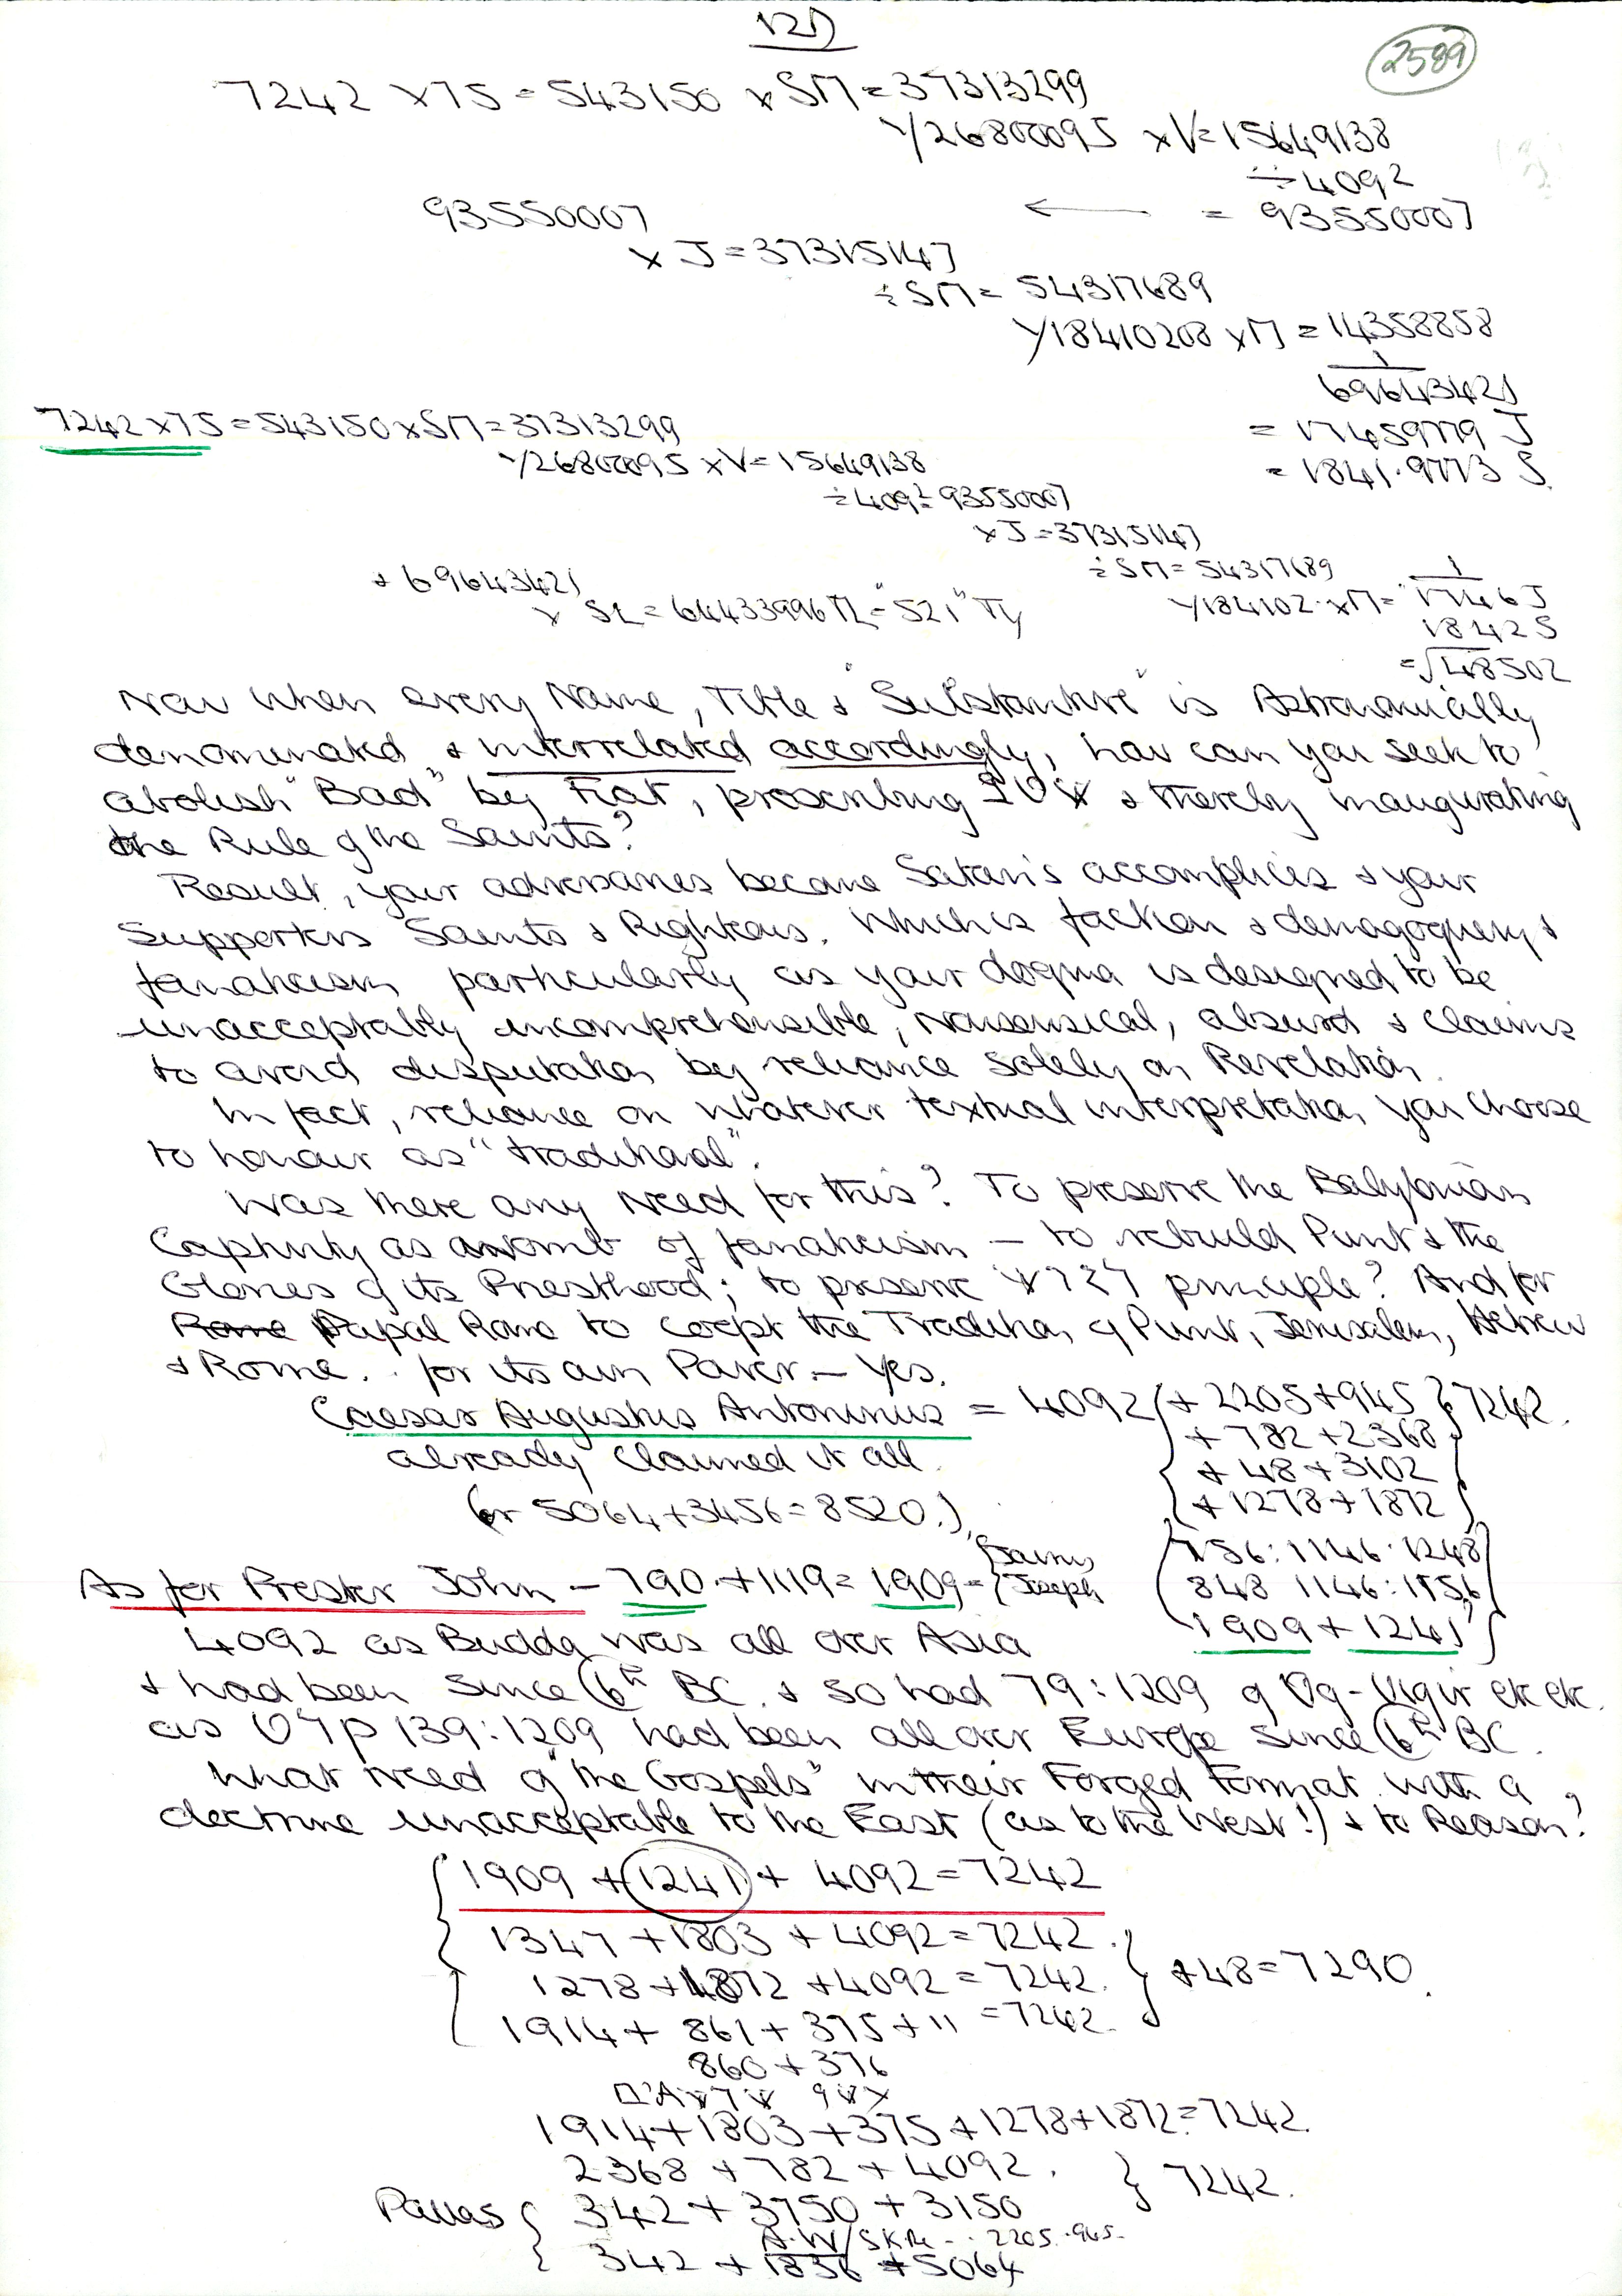 121)
2589
7242 x 75 = 543150 x SM = 37313299
y/26800095 x V = 15649138
÷ 4092
93550007 ← = 93550007
x J = 37315147
÷ SM = 54317689
y/18410208 x M = 14358858
1
69643421
= 17459779 J
= 1841.9773 S
7242 x 75 = 543150 x SM = 37313299
y/26800095 x V = 15649138
÷ 4092 = 93550007
x J = 37315147
÷ SM = 54317689
y/184102. x M = 1
1746 J
1842 S
= √48502
+ 69643421
x SL = 64433996 TL = "521" Ty
Now when every Name, Title & "Substantive" is Astronomically
denominated & interrelated accordingly, how can you seek to
abolish "Bad" by Fiat, proscribing & thereby inaugurating
the Rule of the Saints?
Result, your adversaries become Satan's accomplices & your
Supporters Saints & Righteous. Which is faction & demagoguery &
fanaticism particularly as your dogma is designed to be
unacceptably incomprehensible, Nonsensical, absurd & claims
to avoid disputation by reliance solely on Revelation.
In fact, reliance on whatever textual interpretation you choose
to honour as "traditional".
Was there any need for this? To preserve the Babylonian
Captivity as a womb of fanaticism – to rebuild Punt & the
Glories of its Priesthood; to preserve principle? And for
Rome Papal Rome to coopt the Tradition of Punt, Jerusalem, Hebrew
& Rome.. for its own Power. – Yes.
Caesar Augustus Antoninus = 4092 { + 2205 + 945 } 7242.
+ 782 + 2368
already claimed it all. + 48 + 3102
+ 1278 + 1872
(or 5064 + 3456 = 8520.)
756 : 1146 . 1248
848 1146 : 1156
1909 + 1241
As for Prester John – 790. + 1119 = 1909 = { Jairus
Joseph
4092 as Budda was all over Asia
& had been since 6th BC. & so had 79 : 1209 of Og - Uigir etc etc.
as 139 : 1209 had been all over Europe since 6th BC.
What need of "the Gospels" in their Forged Format with a
doctrine unacceptable to the East (as to the West!) & to Reason?
1909 + 1241 + 4092 = 7242
1347 + 1803 + 4092 = 7242.
1278 + 1872 + 4092 = 7242. } + 48 = 7290.
1914 + 861 + 375 + 11 = 7242.
860 + 376
1914 + 1803 + 375 + 1278 + 1872 = 7242.
2368 + 782 + 4092. } 7242.
Pallas { 342 + 3750 + 3150
2205.945.
342 + 1836 + 5064